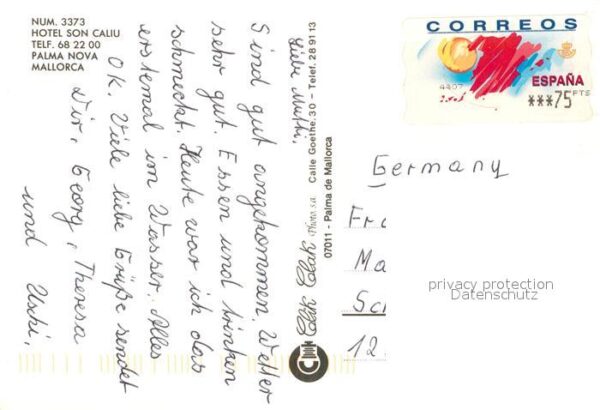 NUM. 3373
HOTEL SON CALIU
TELF. 68 22 00
PALMA NOVA
MALLORCA
Liebe Mutti,
Sind gut angekommen. Wetter
sehr gut. Essen und trinken
schmeckt. Heute war ich das
erstemal im Wasser. Alles
OK. Viele liebe Grüße sendet
Dir, Georg, Theresa
und Uschi.
Photo s.a. Calle Goethe, 30 – Telef. 28 91 13
07011 - Palma de Mallorca
CORREOS
ESPAÑA
4407
***75 PTS
Germany
Fr
Ma
Sc
12
privacy protection
Datenschutz